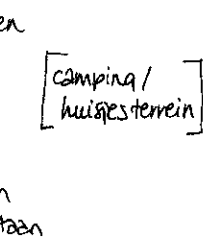 en
camping/
huisjesterrein
n
taan